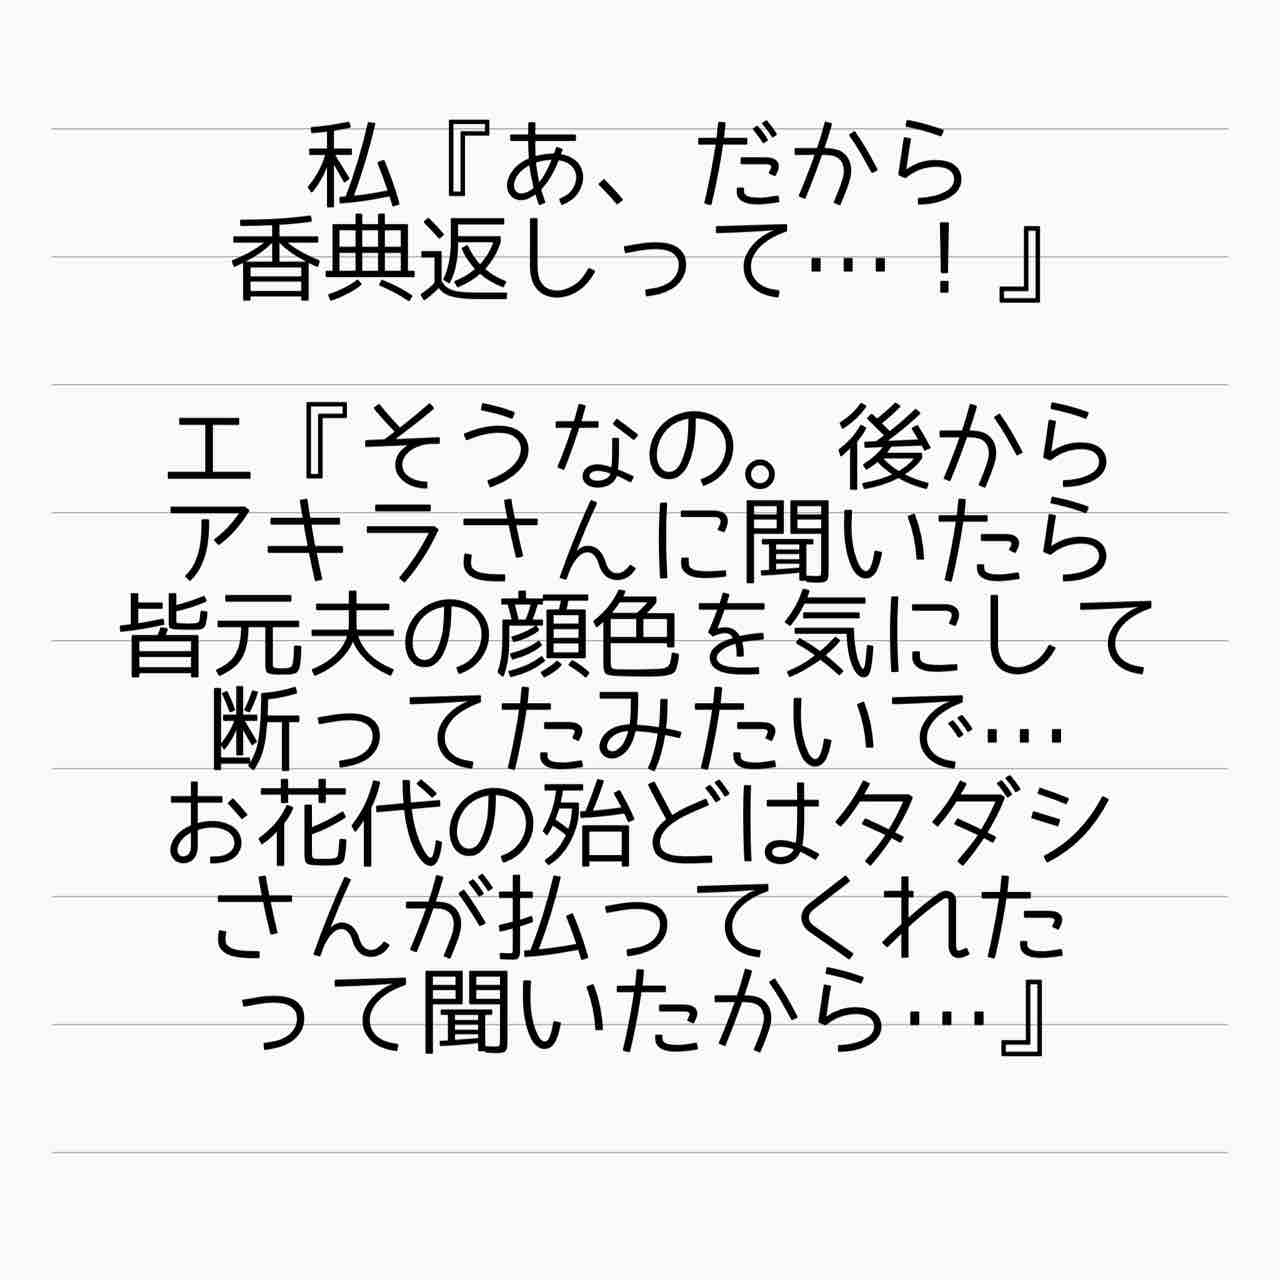 私『あ、だから
香典返しって…！』
エ『そうなの。後から
アキラさんに聞いたら
皆元夫の顔色を気にして
断ってたみたいで…
お花代の殆どはタダシ
さんが払ってくれた
って聞いたから…』